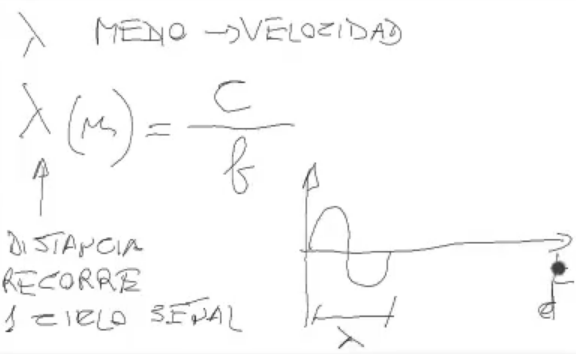 λ MEDIO → VELOZIDAD
λ (m) = c / f
DISTANCIA
RECORRE
1 CICLO SEÑAL
λ
d